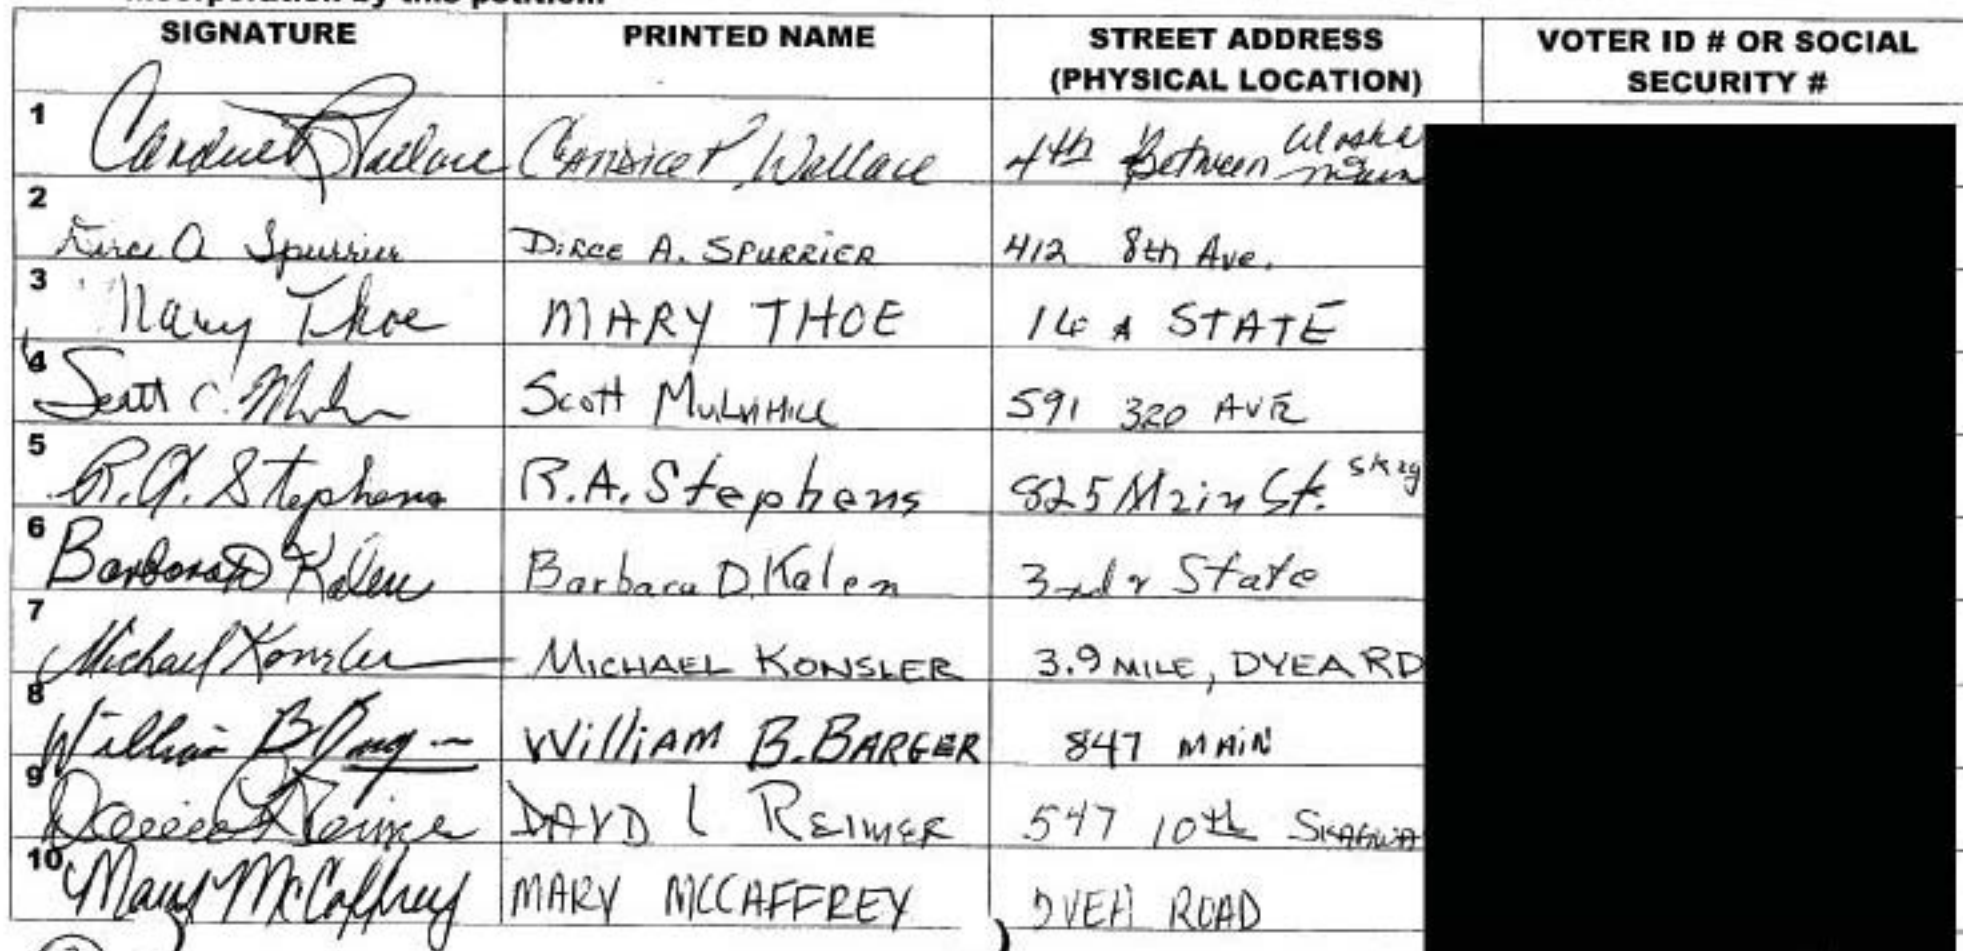 incorporation by this petition.
SIGNATURE PRINTED NAME STREET ADDRESS (PHYSICAL LOCATION) VOTER ID # OR SOCIAL SECURITY #
1 Candice P. Wallace Candice P. Wallace 4th Between Alaska Main
2 Dirce A Spurrier DiRCE A. SPURRiER 412 8th Ave.
3 Mary Thoe MARY THOE STATE
4 Scott C. Scott Mulvihill 591 3RD AVE
5 R.A. Stephens R.A. Stephens 825 Main St. Skag
6 Barbara D Kalen Barbara D. Kalen 3rd & State
7 Michael Konsler MICHAEL KONSLER 3.9 MILE, DYEA RD
8 William B William B. BARGER 847 MAiN
9 David L Reimer DAVD L REIMER 547 10th
10 Mary McCaffrey MARY MCCAFFREY DYEA ROAD